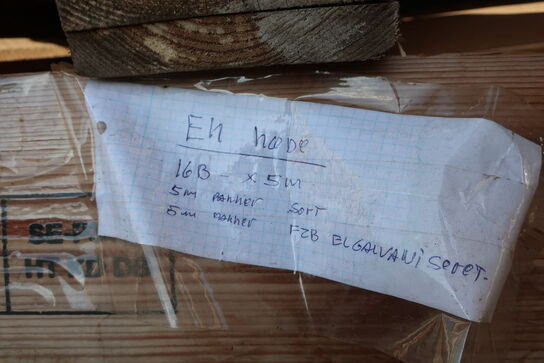 EN HØDE
16B - x 5M
5M RAKKER SORT
5M RAKKER FZB ELGALVANISERET.
SE-
HT DB